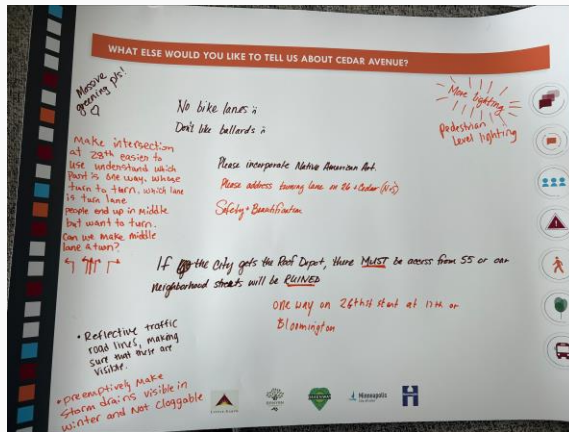 WHAT ELSE WOULD YOU LIKE TO TELL US ABOUT CEDAR AVENUE?
Massive
greening pls!
No bike lanes
Don't like bollards
More lighting
pedestrian
level lighting
Make intersection
at 28th easier to
use understand which
part is one way, whose
turn to turn, which lane
is turn lane
people end up in middle
but want to turn.
Can we make middle
lane a turn?
Please incorporate Native American Art.
Please address turning lane on 26 + Cedar (N+S)
Safety + Beautification
If the City gets the Roof Depot, there MUST be access from 55 or our
neighborhood streets will be RUINED
one way on 26th st start at 17th or
Bloomington
• Reflective traffic
road lines, making
sure that these are
visible.
• preemptively Make
Storm drains visible in
winter and Not Cloggable
Minneapolis